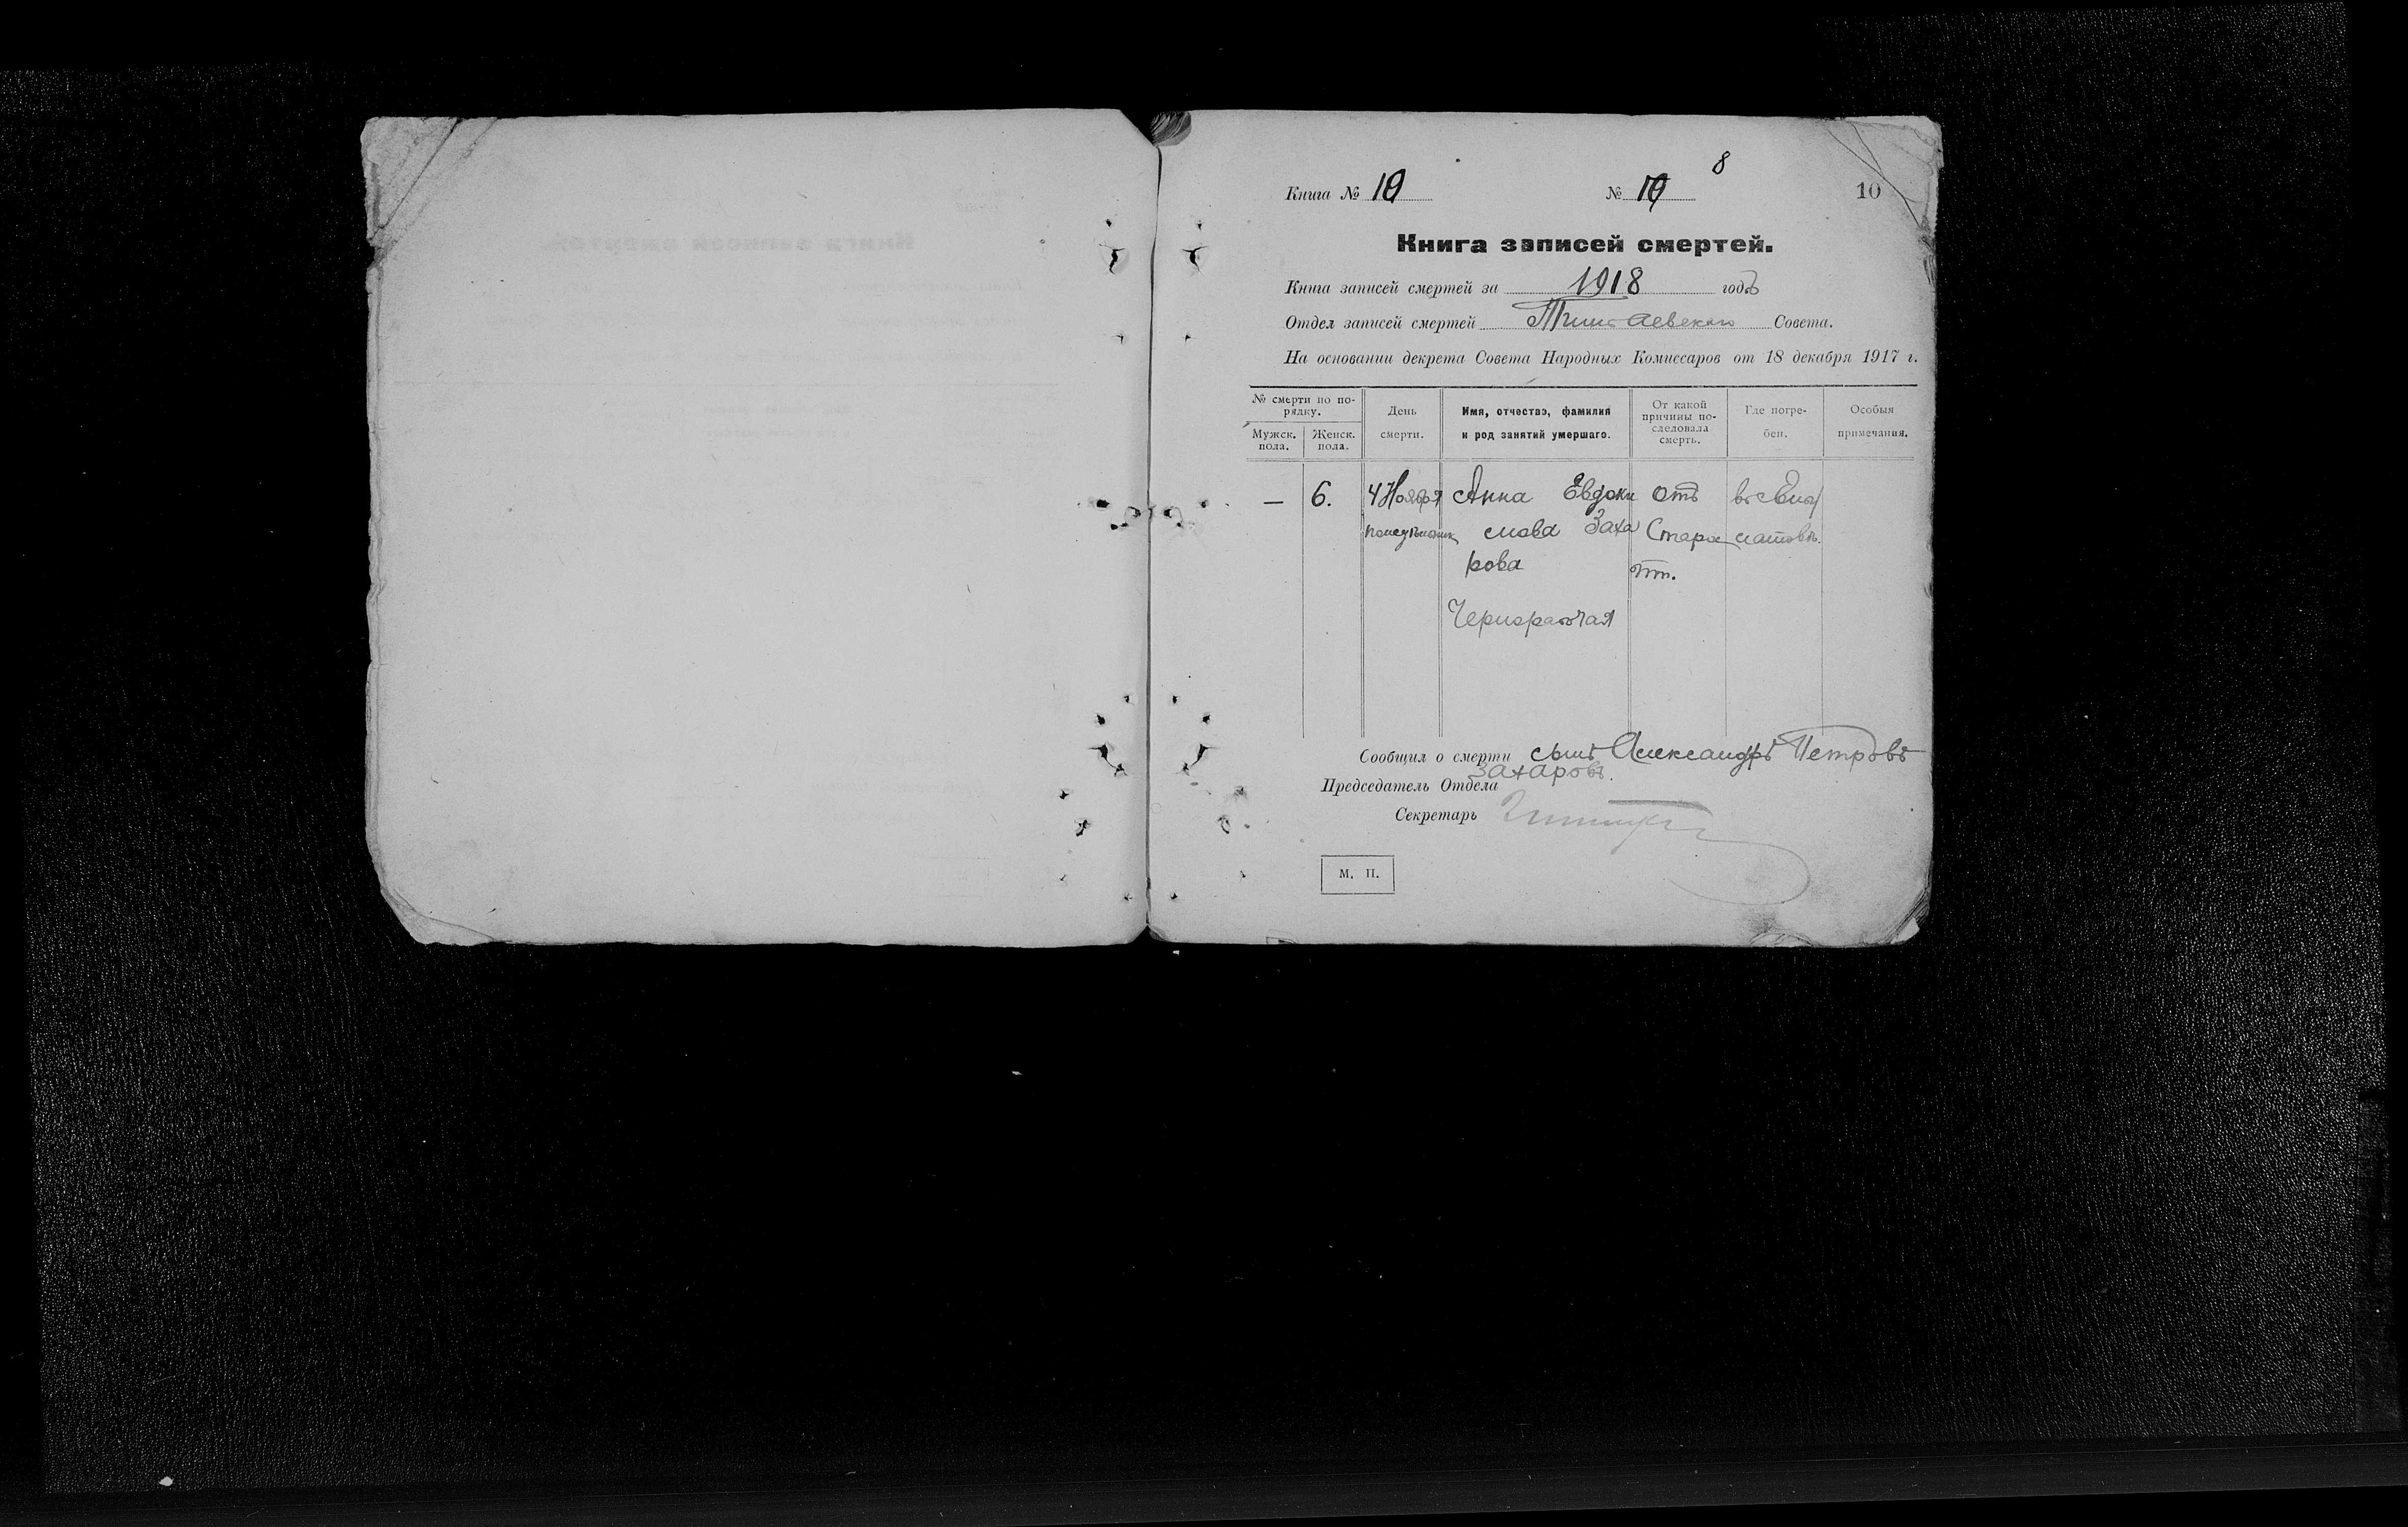 8
Книга № 10 № 10 10
Книга записей смертей.
Книга записей смертей за 1918 годъ
Отдел записей смертей Совета.
На основании декрета Совета Народных Комиссаров от 18 декабря 1917 г.
№ смерти по по-
рядку.
Мужск.
пола.
Женск.
пола.
День
смерти.
Имя, отчество, фамилия
и род занятий умершаго.
От какой
причины по-
следовала
смерть.
Где погре-
бен.
Особыя
примечания.
— 6. 4 Ноября Анна Евдоки отъ
понедѣльник мова Заха Старо
рова сти.
Чернорабочая
Сообщил о смерти сынъ Александръ Петровъ
Захаровъ.
Председатель Отдела
Секретарь
М. П.